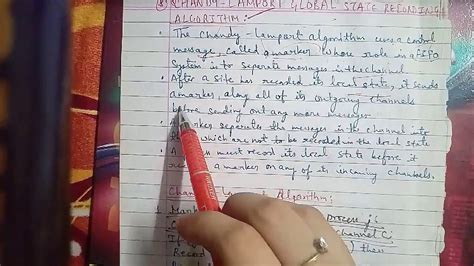 CHANDY-LAMPORT GLOBAL STATE RECORDING
ALGORITHM:
• The Chandy-Lamport algorithm uses a control
message, called a marker whose role in a FIFO
System is to separate messages in the channel
• After a site has recorded its local state, it sends
a marker, along all of its outgoing channels
before sending out any more messages
• separates the messages in the channel into
which are not to be recorded in the local state
• A must record its local state before it
a marker on any of its incoming channels.
Algorithm:
process
channel C
If then